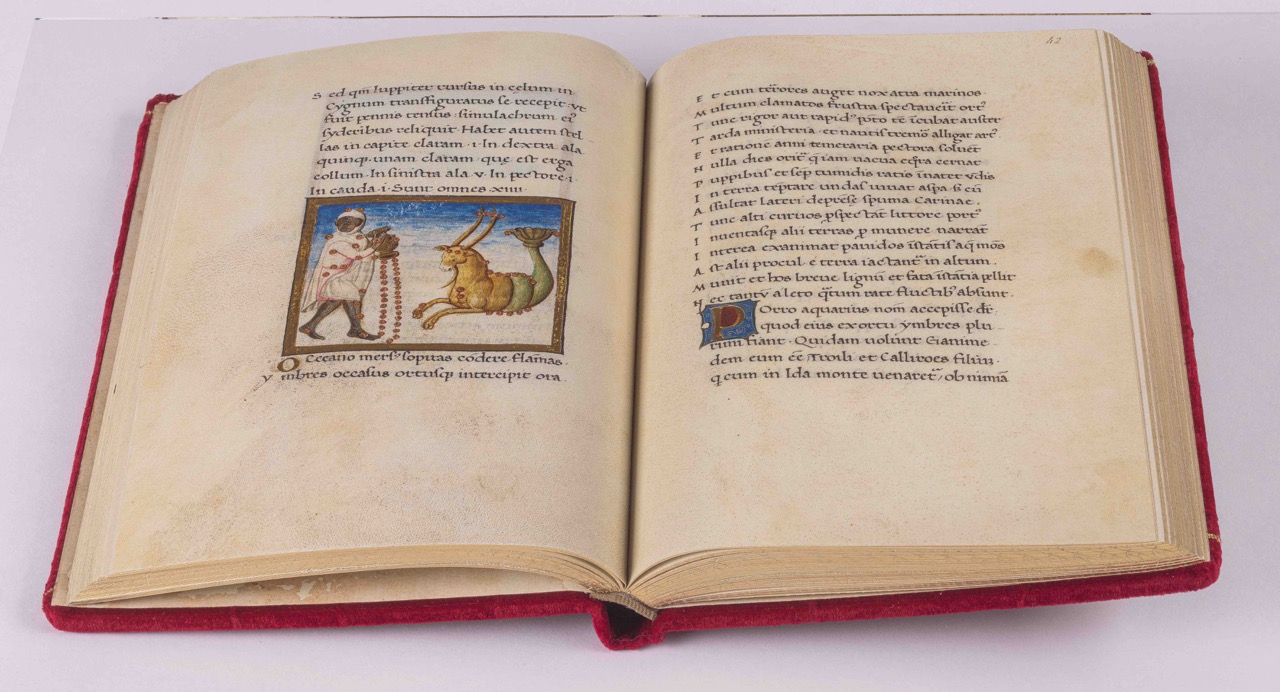 Sed qm̄ Iuppiter rursus in celum in
Cygnum transfiguratus se recepit · vt
fuit pennis tensus · simulachrum ei
syderibus reliquit · Habet autem stel
las in capite claram · i · In dextra ala
quinq; unam claram · que est erga
collum · In sinistra ala · v · In pectore · i ·
In cauda · i · Sunt omnes · xiiii ·
Occeano mers⁹ sopitas condere flamas ·
ymbres occasus ortusq; intercipit ora ·
42
Et cum terrores auget nox atra marinos ·
Multum clamatos frustra spectaueīt ort⁹
Tunc rigor aut rapid⁹ pōto tē īcubat auster
Tarda ministeria · et nautis tremor alligat art⁹ ·
Et rationē anni temeraria pectora soluēt
Nulla dies
Puppibus et sēp tumidis ratis īnatet vdis
In terra teptare undas iuuat aspa
Assultat lateri deprēse spuma Carinae ·
Tunc alti curuos pspectāt littore port⁹
Inuentasq; alii terras p munere narrāt
Interea exanimat pauidos īstātis aq mōs
Ast alii procul e terra iactant in altum ·
Munit et hos breue lignū et fata īstātia pellit
Nec tantū a leto q̄tum rate fluctib⁹ absunt ·
Porro aquarius nom̄ accepisse dr̄ ·
quod eius exortu ymbres plu
rimi fiant · Quidam uolunt Ganime
dem eum eē Troili et Calliroes filiū ·
qcum in Ida monte uenaret⁹ / ob nimiā